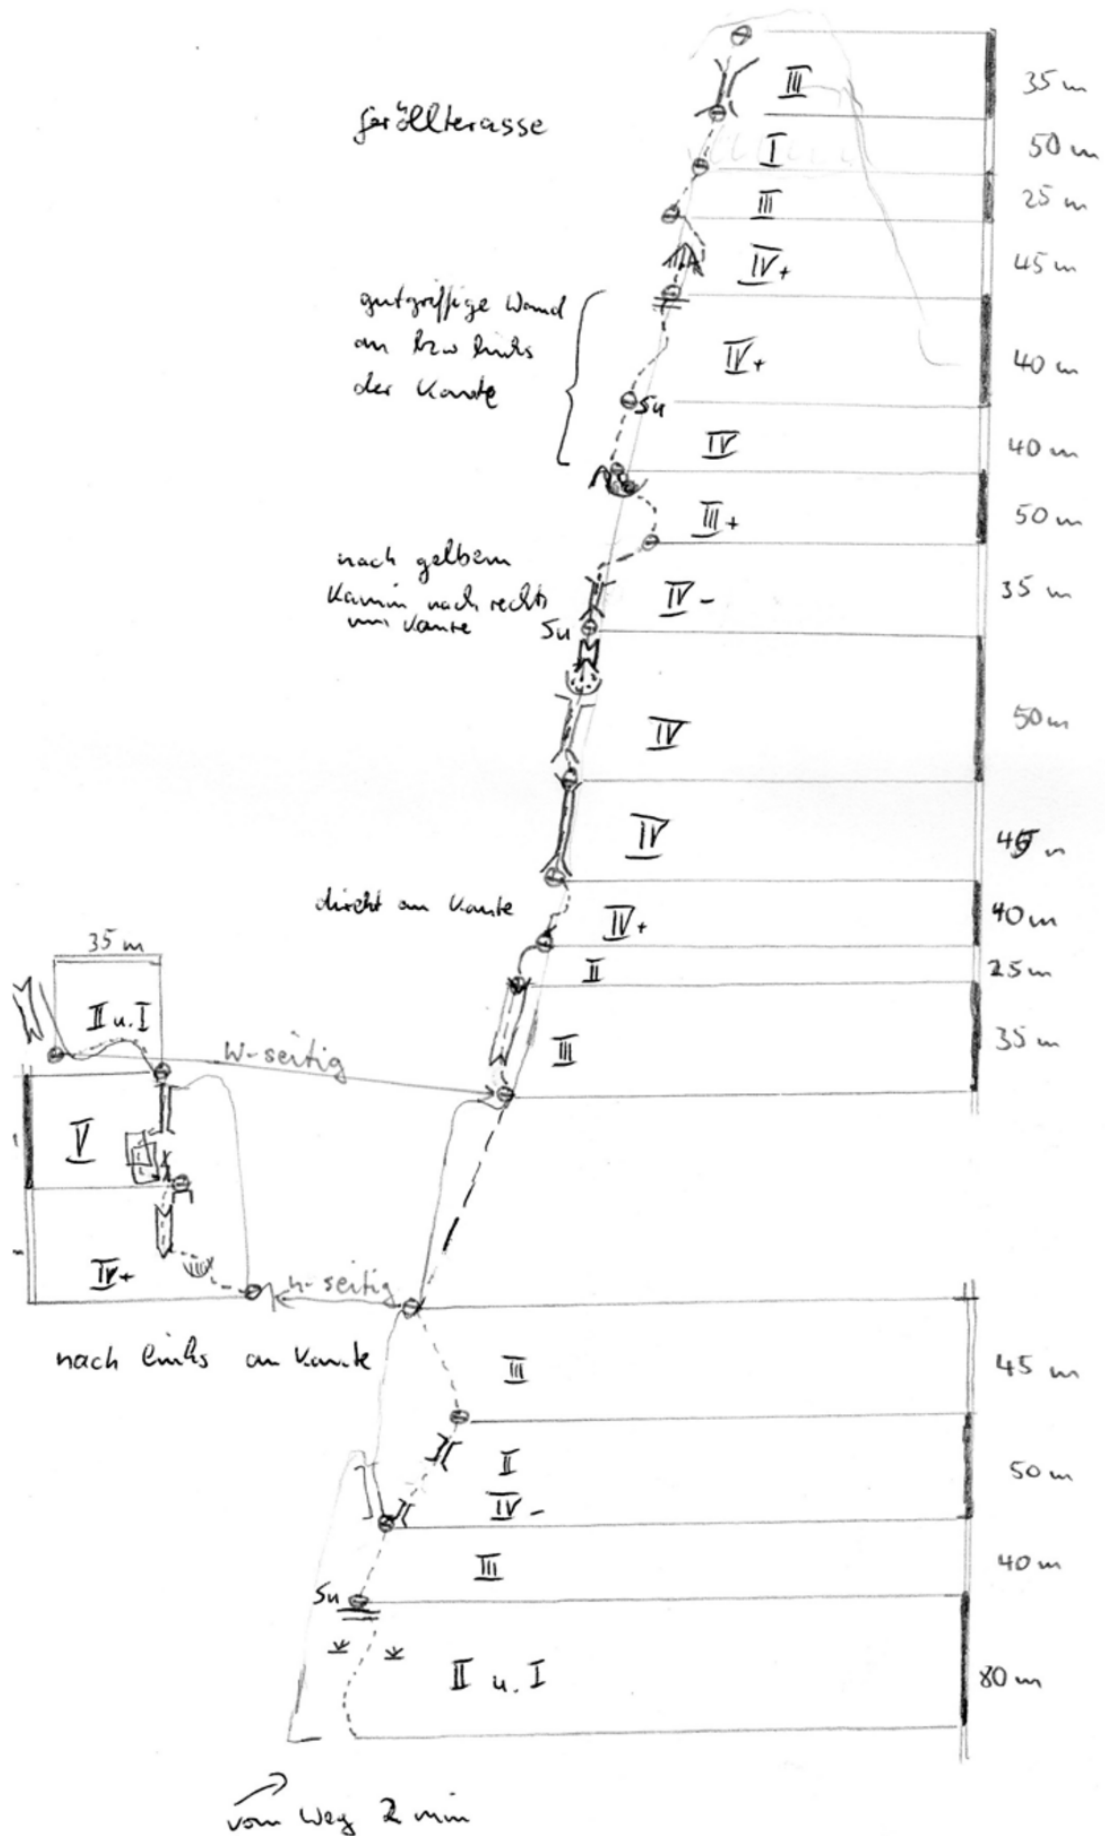 III 35 m
Geröllterasse
I 50 m
III 25 m
IV+ 45 m
gutgriffige Wand
an bzw links
der Kante
IV+ 40 m
Su
IV 40 m
III+ 50 m
nach gelbem
Kamin nach rechts
um Kante
IV- 35 m
Su
IV 50 m
IV 45 m
direkt an Kante
IV+ 40 m
II 25 m
35 m
II u. I
III 35 m
W-seitig
V
IV+
N-seitig
nach links an Kante
III 45 m
II 50 m
IV-
III 40 m
Su
II u. I 80 m
vom Weg 2 min